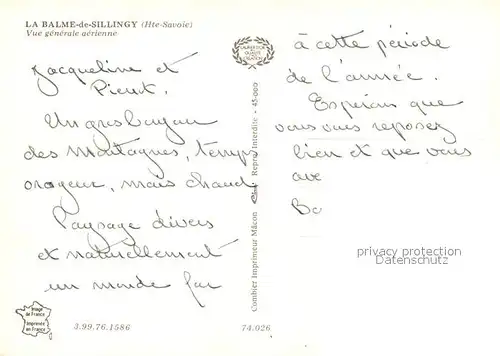 LA BALME-de-SILLINGY (Hte-Savoie)
Vue générale aérienne
Jacqueline et
Pierrot.
Un gros bonjour
des Montagnes, temps
orageux, mais chaud
Paysage divers
et naturellement
un monde fou
à cette période
de l'année.
Espérons que
vous vous reposez
bien et que vous
ave
Bo
Combier Imprimeur Mâcon Cim Repro. Interdite - 45-000
privacy protection
Datenschutz
Image
de France
Imprimée
en France
3.99.76.1586
74.026